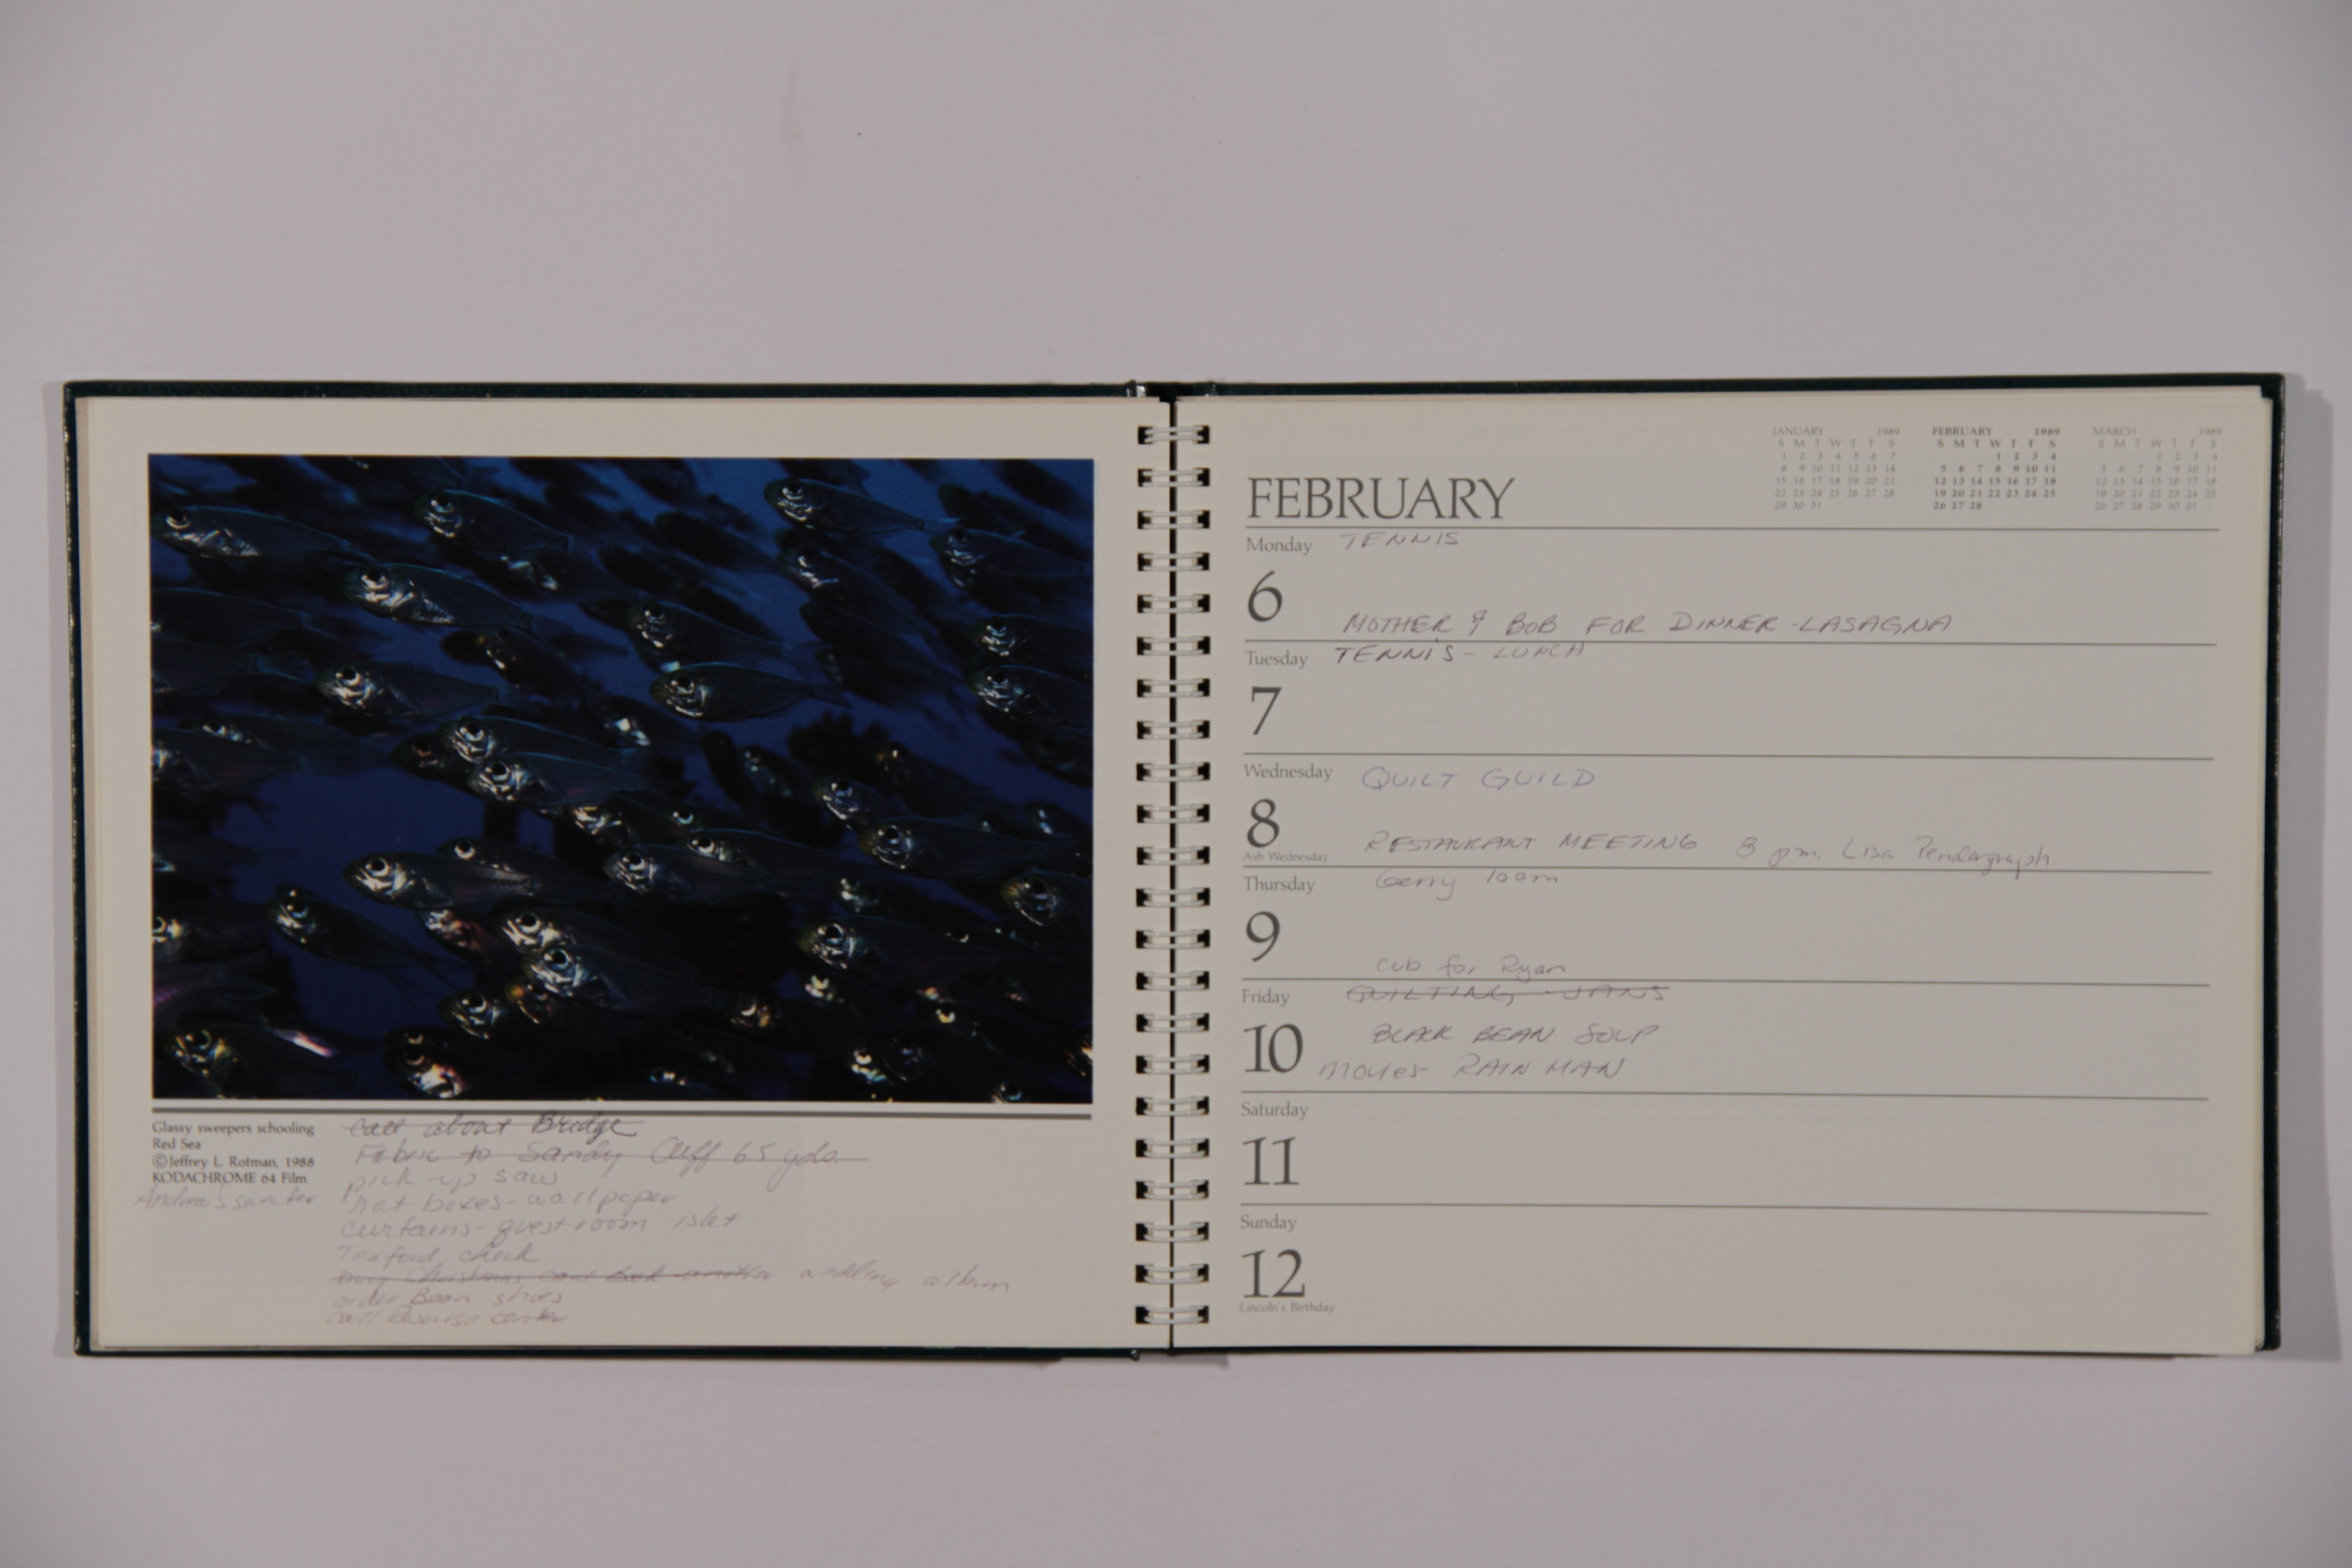 Glassy sweepers schooling
Red Sea
©Jeffrey L. Rotman, 1988
KODACHROME 64 Film
Andrea's sweater
Call about Bridge
Fabric to Sandy Cliff 65 yds.
pick-up saw
hat boxes - wallpaper
curtains - guestroom islet
check
buy Christmas card Book another wedding album
order Bean shoes
call Resourse center
JANUARY 1989
S M T W T F S
1 2 3 4 5 6 7
8 9 10 11 12 13 14
15 16 17 18 19 20 21
22 23 24 25 26 27 28
29 30 31
FEBRUARY 1989
S M T W T F S
1 2 3 4
5 6 7 8 9 10 11
12 13 14 15 16 17 18
19 20 21 22 23 24 25
26 27 28
MARCH 1989
S M T W T F S
1 2 3 4
5 6 7 8 9 10 11
12 13 14 15 16 17 18
19 20 21 22 23 24 25
26 27 28 29 30 31
FEBRUARY
Monday TENNIS
6
MOTHER & BOB FOR DINNER - LASAGNA
Tuesday TENNIS - LUNCH
7
Wednesday QUILT GUILD
8
RESTAURANT MEETING 8 pm. Lisa Pendergraph
Ash Wednesday
Thursday Gerry 10am
9
cub for Ryan
Friday QUILTING - JANS
10 BLACK BEAN SOUP
MOVIES - RAIN MAN
Saturday
11
Sunday
12
Lincoln's Birthday